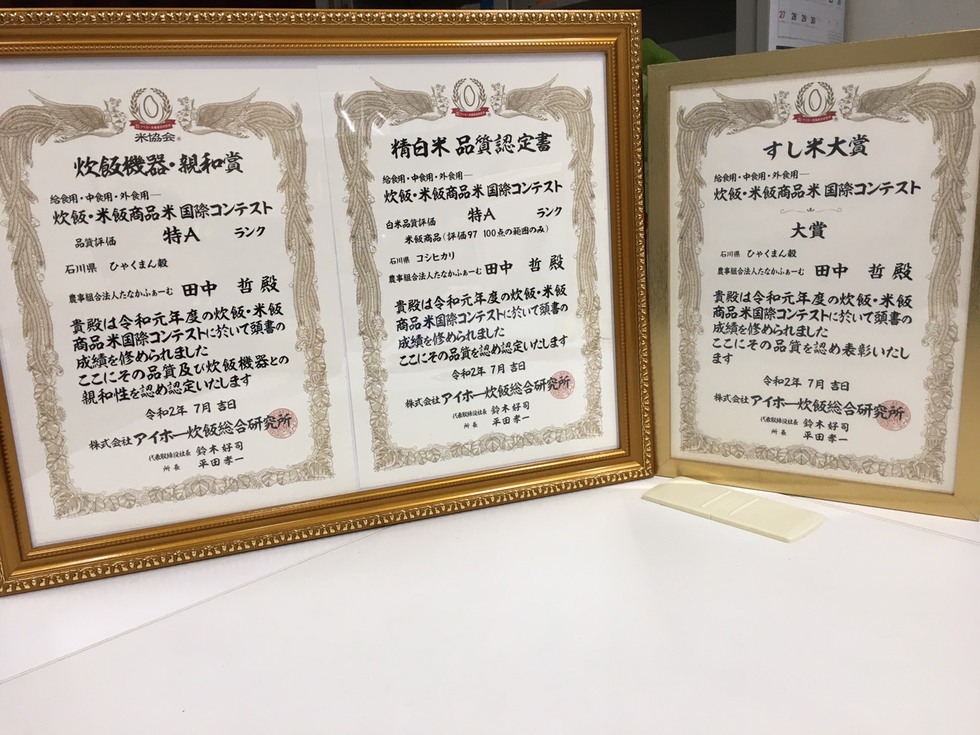 米協会
炊飯機器・親和賞
給食用・中食用・外食用
炊飯・米飯商品米国際コンテスト
品質評価 特A ランク
石川県 ひゃくまん穀
農事組合法人たなかふぁーむ 田中 哲殿
貴殿は令和元年度の炊飯・米飯
商品米国際コンテストに於いて頭書の
成績を修められました
ここにその品質及び炊飯機器との
親和性を認め認定いたします
令和2年 7月 吉日
株式会社アイホー炊飯総合研究所
代表取締役社長 鈴木好司
所長 平田孝一
精白米 品質認定書
給食用・中食用・外食用
炊飯・米飯商品米国際コンテスト
白米品質評価 特A ランク
米飯商品(評価97 100点の範囲のみ)
石川県 コシヒカリ
農事組合法人たなかふぁーむ 田中 哲殿
貴殿は令和元年度の炊飯・米飯
商品米国際コンテストに於いて頭書の
成績を修められました
ここにその品質を認め認定いたします
令和2年 7月 吉日
株式会社アイホー炊飯総合研究所
代表取締役社長 鈴木好司
所長 平田孝一
すし米大賞
給食用・中食用・外食用
炊飯・米飯商品米国際コンテスト
大賞
石川県 ひゃくまん穀
農事組合法人たなかふぁーむ 田中 哲殿
貴殿は令和元年度の炊飯・米飯
商品米国際コンテストに於いて頭書の
成績を修められました
ここにその品質を認め表彰いたし
ます
令和2年 7月 吉日
株式会社アイホー炊飯総合研究所
代表取締役社長 鈴木好司
所長 平田孝一
27 28 29 30